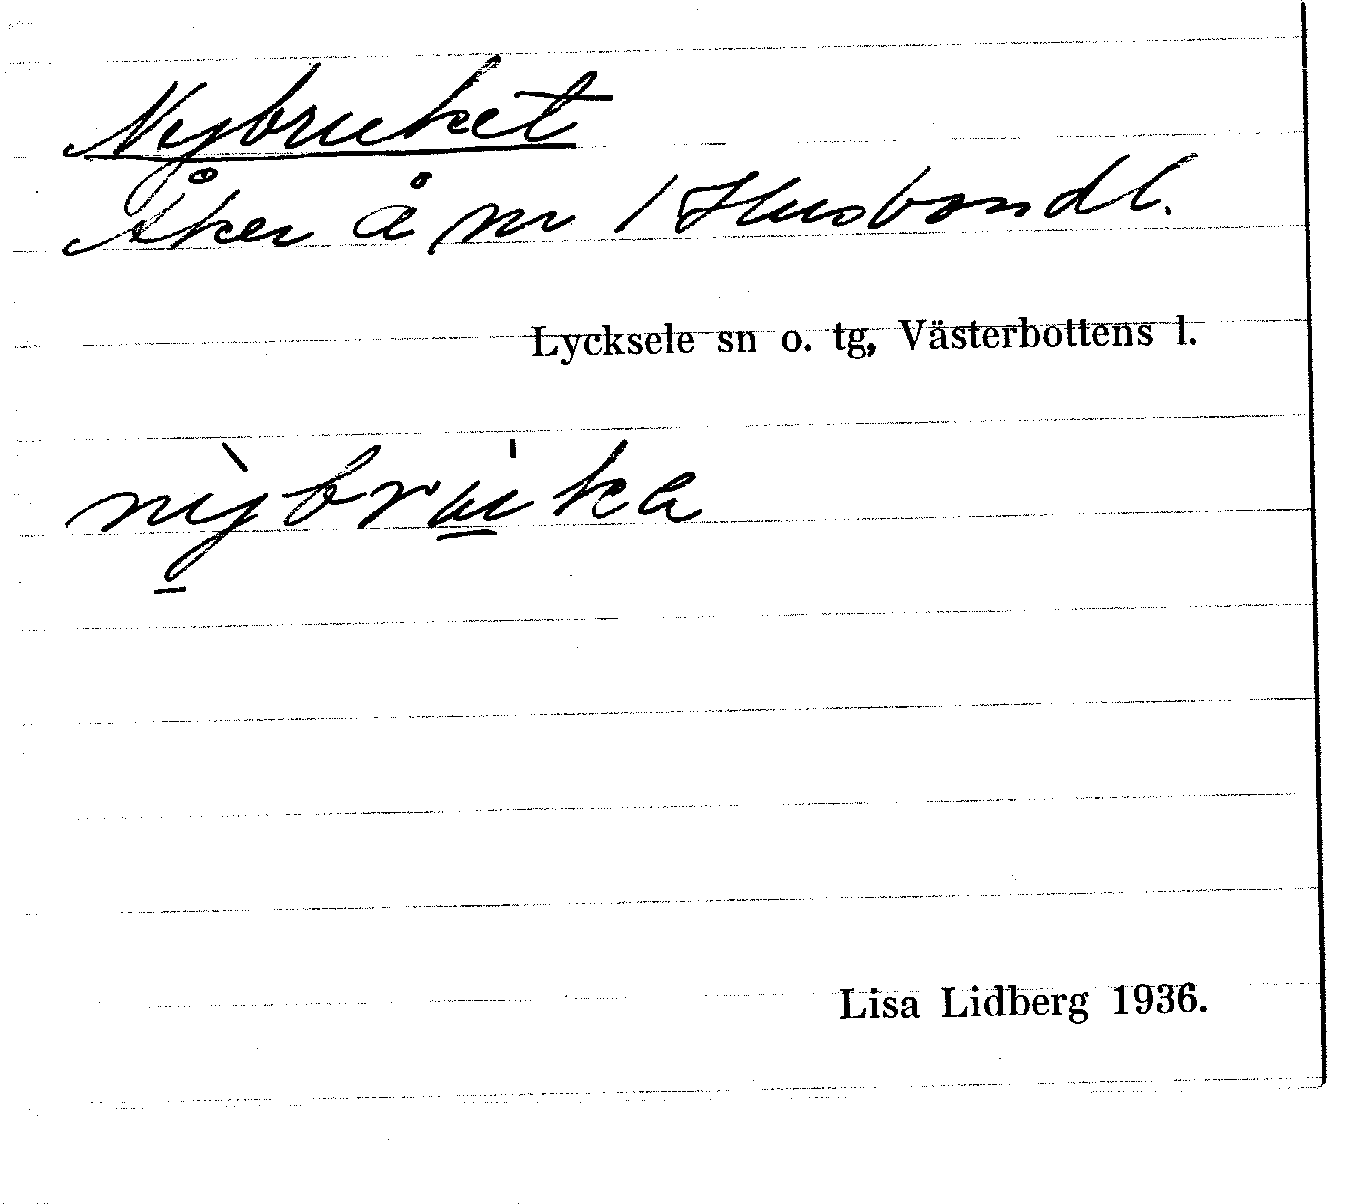 Nybruket
Åker å nr 1 Husbondl.
Lycksele sn o. tg, Västerbottens l.
nỳbruka
Lisa Lidberg 1936.